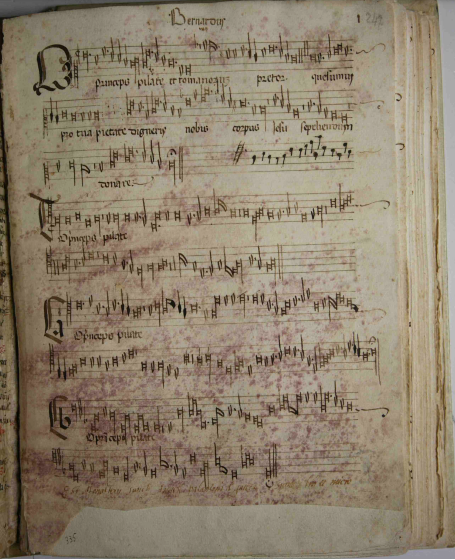 Bernardus
1 242
O princeps pilate et romanorum pretor quesumus
pro tua pietate digneris nobis corpus Jesu sepeliendum
donare
O princeps pilate
O princeps pilate
O princeps pilate
335